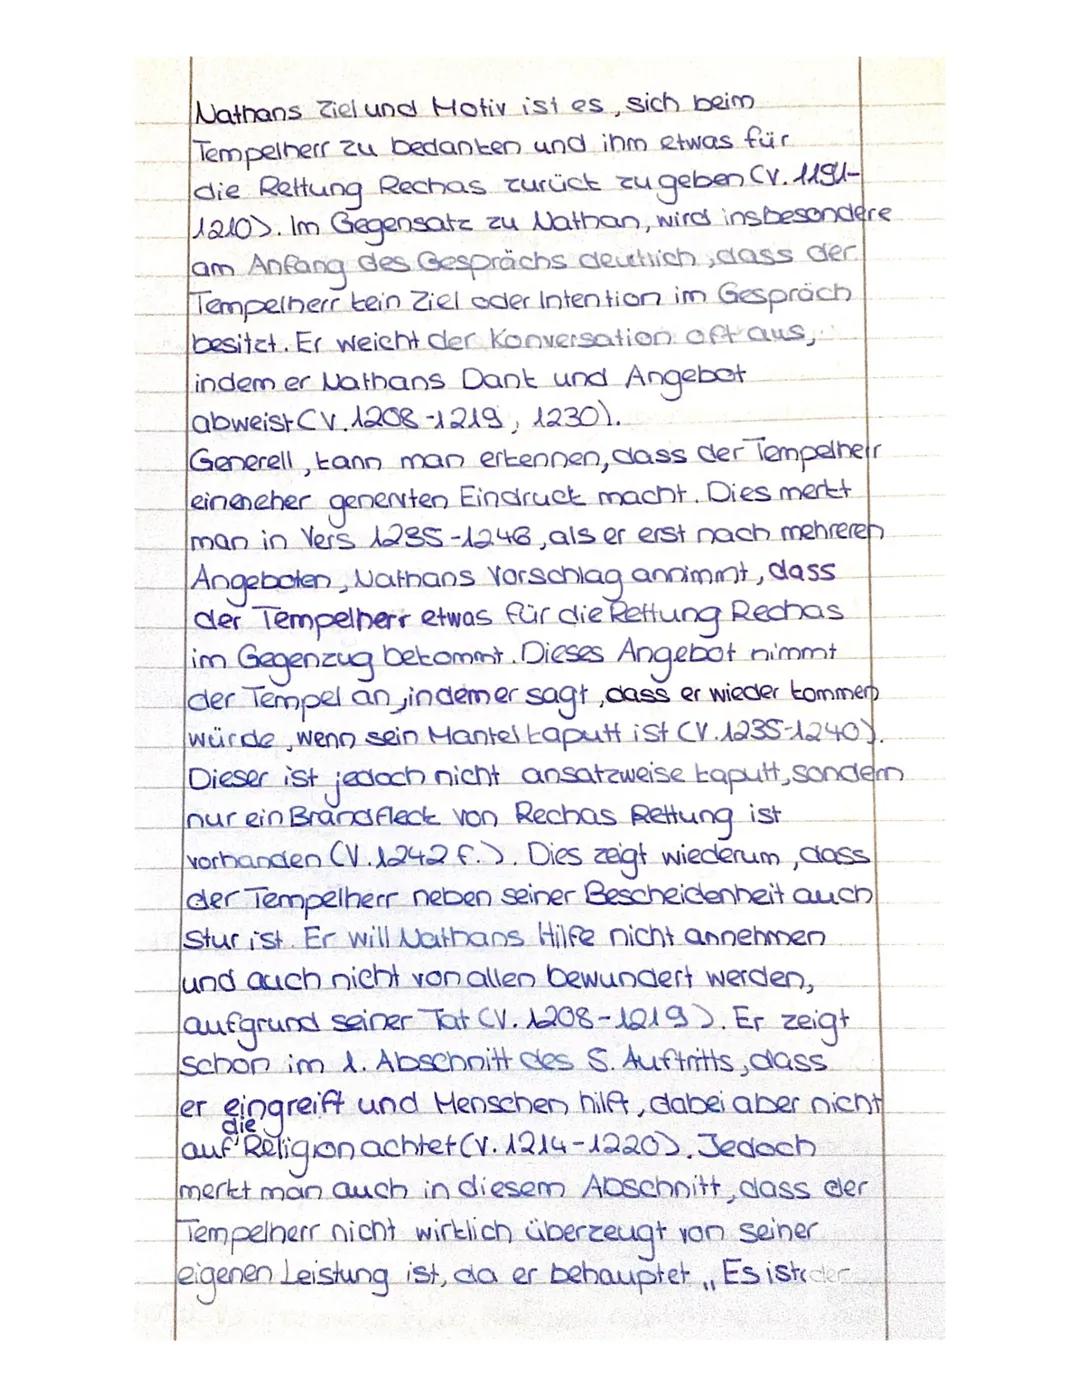 Nathans Ziel und Motiv ist es, sich beim
Tempelherr zu bedanken und ihm etwas für
die Rettung Rechas zurück zu geben (V. 1191-
1210). Im Gegensatz zu Nathan, wird insbesondere
am Anfang des Gesprächs deutlich, dass der
Tempelherr kein Ziel oder Intention im Gespräch
besitzt. Er weicht der Konversation oft aus,
indem er Nathans Dank und Angebot
abweist (V. 1208-1219, 1230).
Generell, kann man erkennen, dass der Tempelherr
einen eher genervten Eindruck macht. Dies merkt
man in Vers 1235-1246, als er erst nach mehreren
Angeboten, Nathans Vorschlag annimmt, dass
der Tempelherr etwas für die Rettung Rechas
im Gegenzug bekommt. Dieses Angebot nimmt
der Tempel an, indem er sagt, dass er wieder kommen
würde, wenn sein Mantel kaputt ist (V. 1235-1240).
Dieser ist jedoch nicht ansatzweise kaputt, sondern
nur ein Brandfleck von Rechas Rettung ist
vorhanden (V. 1242 f.). Dies zeigt wiederum, dass
der Tempelherr neben seiner Bescheidenheit auch
Stur ist. Er will Nathans Hilfe nicht annehmen
und auch nicht von allen bewundert werden,
aufgrund seiner Tat (V. 1208-1219). Er zeigt
schon im 1. Abschnitt des 5. Auftritts, dass
er eingreift und Menschen hilft, dabei aber nicht
auf die Religion achtet (V. 1214-1220). Jedoch
merkt man auch in diesem Abschnitt, dass der
Tempelherr nicht wirklich überzeugt von seiner
eigenen Leistung ist, da er behauptet „Es ist der